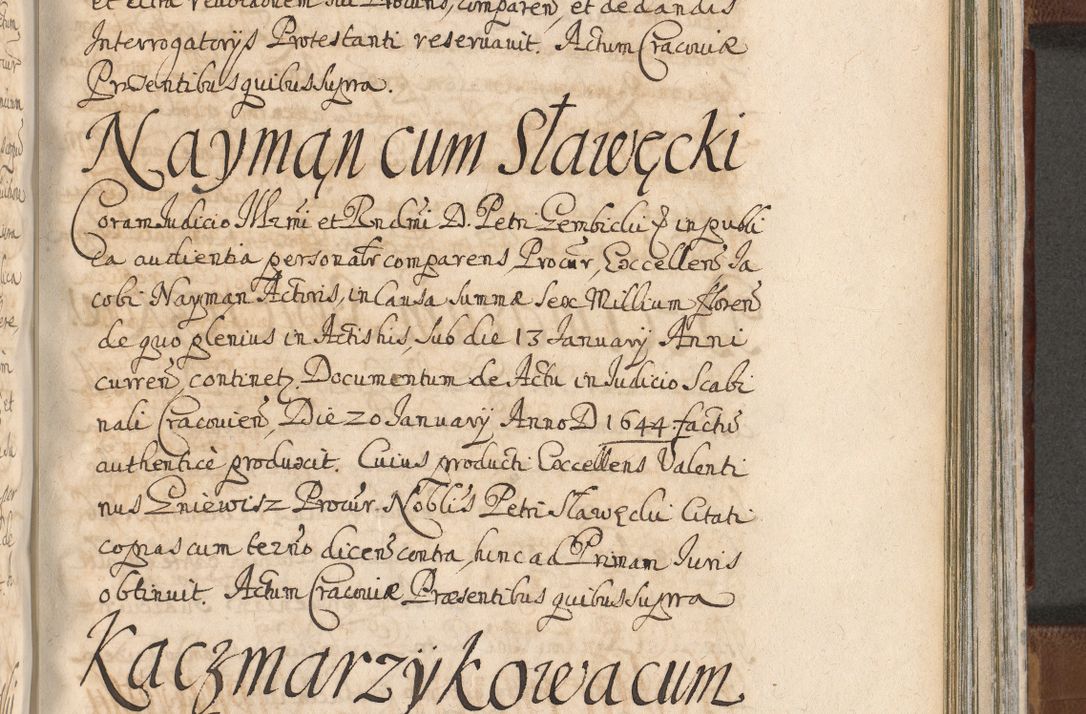 et citra revocationem sui Procuris, comparen̄ et de dandis
Interrogatorijs Protestanti reservavit. Actum Cracoviæ
Præsentibus quibus supra.
Nayman cum Sławęcki
Coram Judicio Illr̄mi et Rndmi D. Petri Gembicki & in publi
ca audientia personalr̄ comparens Procur̄, Excellen̄s Ja
cobi Nayman Actoris, in Causa Summæ sex Millium floren̄
de quo plenius in Actis his, sub die 13 Januarij Anni
curren̄, continetz. Documentum de Actu in Judicio Scabi
nali Cracovien̄, Die 20 Januarij Anno D 1644 factū
authenticè produxit. Cuius producti Excellens Valenti
nus Gniewisz Procur̄. Noblis Petri Sławęcki Citati
copias cum ter̄no dicen̄ contra, hinc ad Primam Juris
obtinuit. Actum Cracoviæ Præsentibus quibus supra
Kaczmarzÿkowa cum